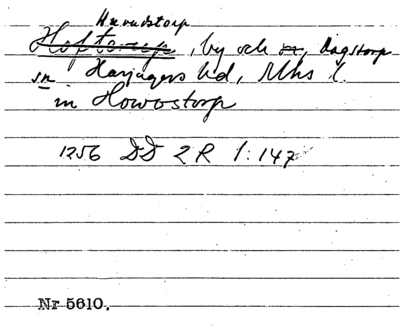 Huvudstorp
Hoftorup, by och sn, Dagstorp
sn Harjagers hd, Mhs l.
in Howostorp
1256 DD 2 R 1:147
Nr 5610.